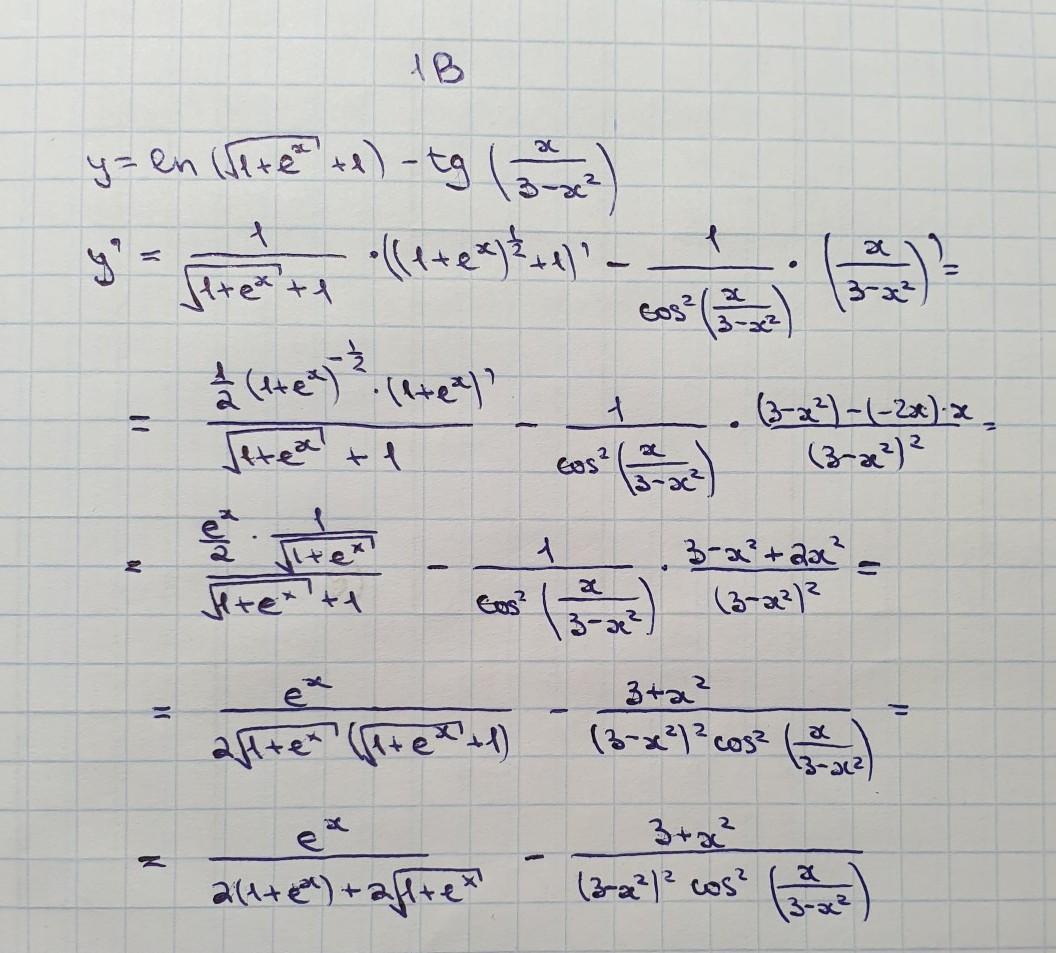 1B
y = ln (√(1+eˣ) + 1) - tg (x/(3-x²))
y' = 1/(√(1+eˣ) + 1) · ((1+eˣ)^(1/2) + 1)' - 1/(cos² (x/(3-x²))) · (x/(3-x²))' =
= (1/2 (1+eˣ)^(-1/2) · (1+eˣ)')/(√(1+eˣ) + 1) - 1/(cos² (x/(3-x²))) · ((3-x²) - (-2x)·x)/((3-x²)²) =
= (eˣ/2 · 1/√(1+eˣ))/(√(1+eˣ) + 1) - 1/(cos² (x/(3-x²))) · (3-x²+2x²)/((3-x²)²) =
= eˣ/(2√(1+eˣ) (√(1+eˣ) + 1)) - (3+x²)/((3-x²)² cos² (x/(3-x²))) =
= eˣ/(2(1+eˣ) + 2√(1+eˣ)) - (3+x²)/((3-x²)² cos² (x/(3-x²)))